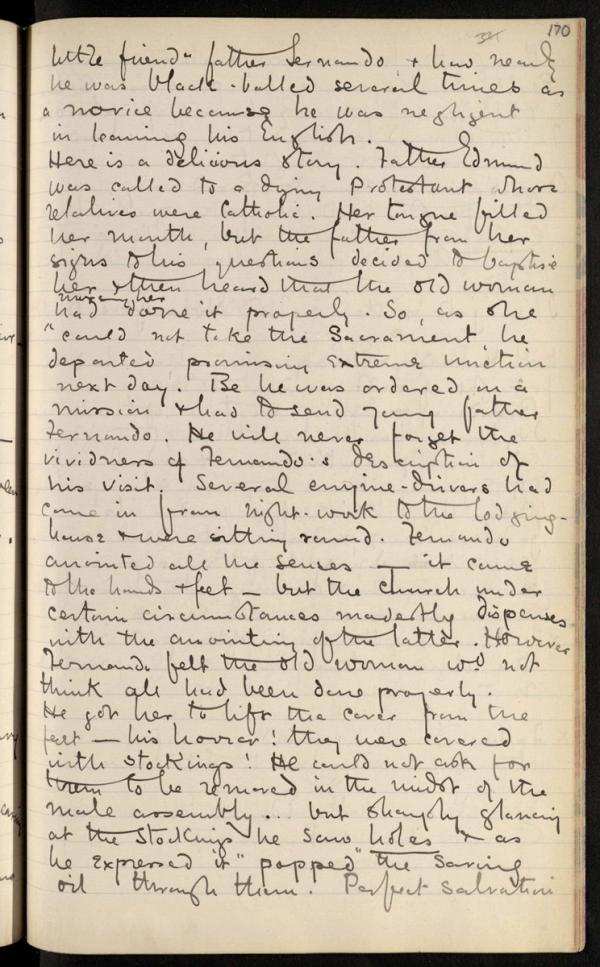 321 170
little friend" father Fernando, & how nearly
he was black-balled several times as
a novice because he was negligent
in learning his English.
Here is a delicious story. Father Edmund
was called to a dying Protestant whose
relatives were Catholic. Her tongue filled
her mouth, but the father from her
signs to his questions decided to baptise
her & then heard that the old woman
nursing her
had done it properly. So, as she
"could not take the Sacrament, he
departed promising extreme unction
next day. Be he was ordered on a
mission & had to send young father
Fernando. He will never forget the
vividness of Fernando's description of
his visit. Several engine-drivers had
come in from night-work to the lodging-
house & were sitting round. Fernando
anointed all the senses — it came
to the hands & feet — but the church under
certain circumstances modestly dispenses
with the anointing of the latter. However
Fernando felt the old woman wd not
think all had been done properly.
He got her to lift the cover from the
feet — his horror! they were covered
with stockings! He could not ask for
them to be removed in the midst of the
male assembly... but sharply glancing
at the stockings he saw holes & as
he expressed it "popped" the saving
oil through them! Perfect salvation